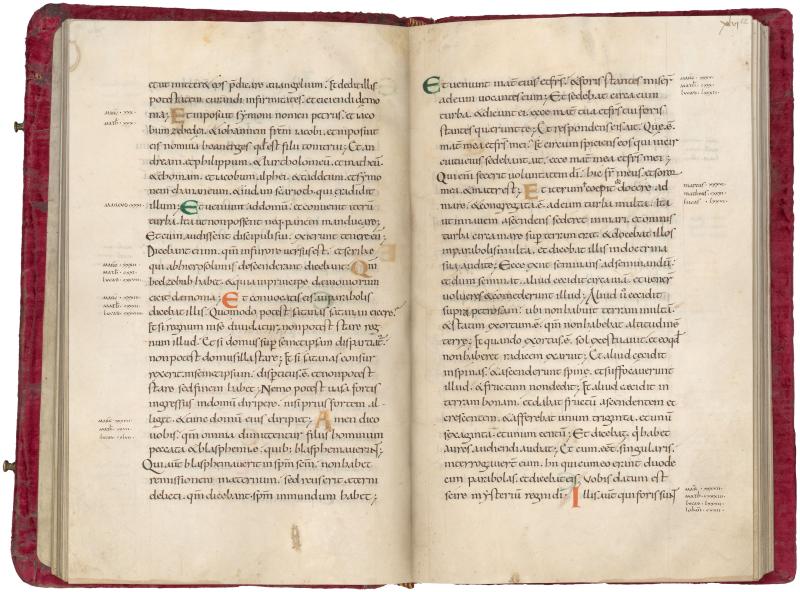 et ut mitteret eos p̄dicare euangelium. Et dedit illis
potestatem curandi infirmitates. et eiciendi demo
nia; Et imposuit symoni nomen petrus. et iaco
bum zebedei. & iohannem frēm iacobi. et imposuit
eis nomina boanerges qđ est filii tonitrui; Et an
dream. et philippum. & bartholomeum. et matheū
& thomam. et iacobum alphei. & taddeum. et symo
nem chananeum. & iudam scarioth. qui tradidit
illum; Et ueniunt ad domū. et conuenit iterū
turba. Ita ut non possent neq; panem manducare;
Et cum audissent discipuli sui. exierunt tenere eū;
Dicebant enim. qm̄ in furore uersus est. et scribae
qui ab hierosolimis descenderant dicebant; Qm̄
beelzebub habet. & quia in principe demoniorum
eicit demonia; Et conuocatis eis in parabolis
dicebat illis. Quomodo potest satanas satanan eicere;
Et si regnum in se diuidatur. non potest stare reg
num illud. Et si domus super semet ipsam dispartiat̄.
non potest domus illa stare; Et si satanas consur
rexerit in semet ipsum. dispertitus ē. et non potest
stare sed finem habet; Nemo potest uasa fortis
ingressus in domū diripere. nisi prius fortem al-
liget & tunc domū eius diripiet; Amen dico
uobis. qm̄ omnia dimittentur filiis hominum
peccata & blasphemiae. quib; blasphemauerint;
Qui aūt blasphemauerit in sp̄m sc̄m. non habet
remissionem in aeternum. sed reus erit aeterni
delicti. qm̄ dicebant. sp̄m inmundum habet;
Et ueniunt mat̄ eius et frs̄. & foris stantes miser̄
ad eum uocantes eum; Et sedebat circa eum
turba. & dicunt ei. ecce mat̄ tua et frs̄ tui foris
stantes querunt te; Et respondens eis ait. Quę ē.
mat̄ mea et frs̄ mei. Et circumspiciens eos qui in cir
cuitu eius sedebant. ait. ecce mat̄ mea et frs̄ mei;
Qui enī fecerit uoluntatem dī. hic fr̄ meus. et soror
mea. & mater est; Et iterum coepit docere ad
mare. & congregata ē. ad eum turba multa. Ita
ut in nauem ascendens sederet in mari. et omnis
turba circa mare sup̄ terram erat. & docebat illos
in parabolis multa. et dicebat illis in doctrina
sua audite; Ecce exiit seminans ad seminandū.
et dum seminat. aliud cecidit circa uiā. et uener̄
uolucres & comederunt illud; Aliud ū cecidit
supra petrosam. ubi non habuit terram multā.
& statim exortum ē. qm̄ non habebat altitudinē
terrę; Et quando exortus ē. sol. exestuauit. et eo qđ
non haberet radicem exaruit; Et aliud cecidit
in spinas. & ascenderunt spinę. et suffocauerunt
illud. & fructum non dedit; Et aliud cecidit in
terram bonam. et dabat fructū ascendentem et
crescentem. & afferebat unum triginta. et unū
sexaginta. et unum centū; Et dicebat. q̄ habet
aures audiendi. audiat; Et cum eēt. singularis.
interrogauert̄ eum. hii qui cum eo erant duode
cim parabolas. et dicebat eis. Vobis datum est
scire mysteriū regni dī. Illis. aūt qui foris sunt